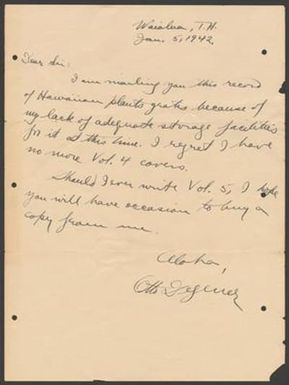 Waialua, T.H.
Jan. 5, 1942.
Dear Sir:
I am mailing you this record
of Hawaiian plants gratis because of
my lack of adequate storage facilities
for it at this time. I regret I have
no more Vol. 4 covers.
Should I ever write Vol. 5, I hope
you will have occasion to buy a
copy from me.
Aloha,
Otto Degener